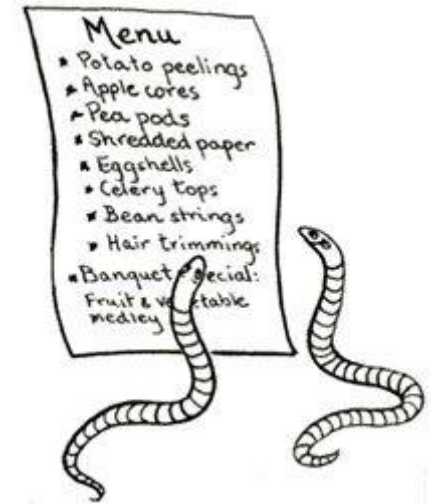 Menu
Potato peelings
Apple cores
Pea pods
Shredded paper
Eggshells
Celery tops
Bean strings
Hair trimmings
Banquet ecial:
Fruit & etable
medley